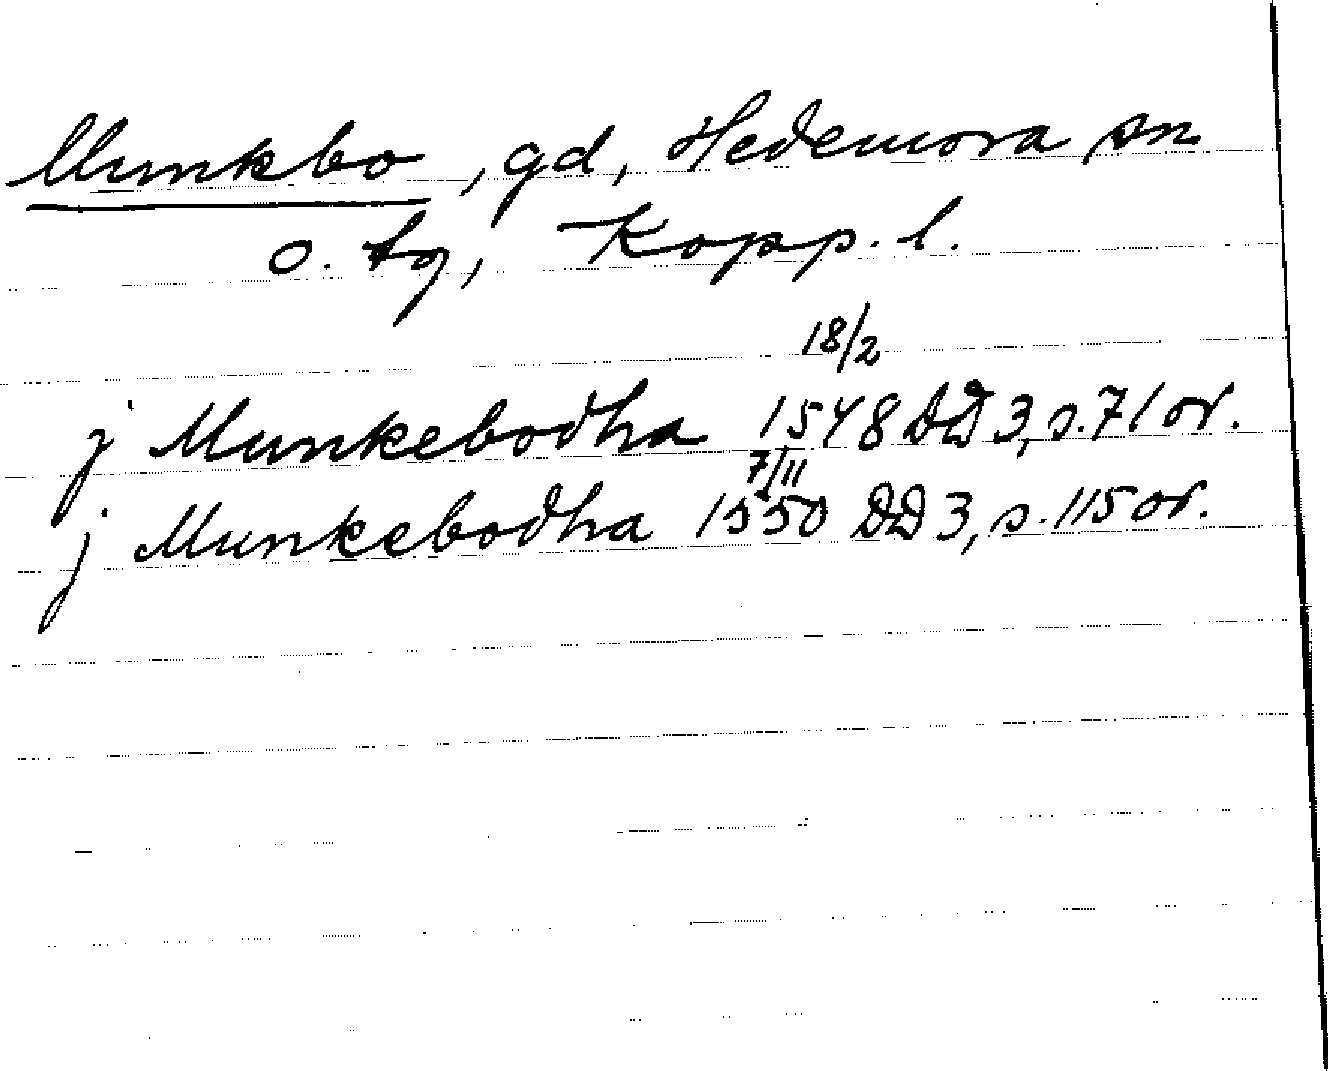 Munkbo, gd, Hedemora sn
o. tg, Kopp. l.
18/2
j Munkebodha 1548 DD 3, s. 71 or.
7/11
j Munkebodha 1550 DD 3, s. 115 or.